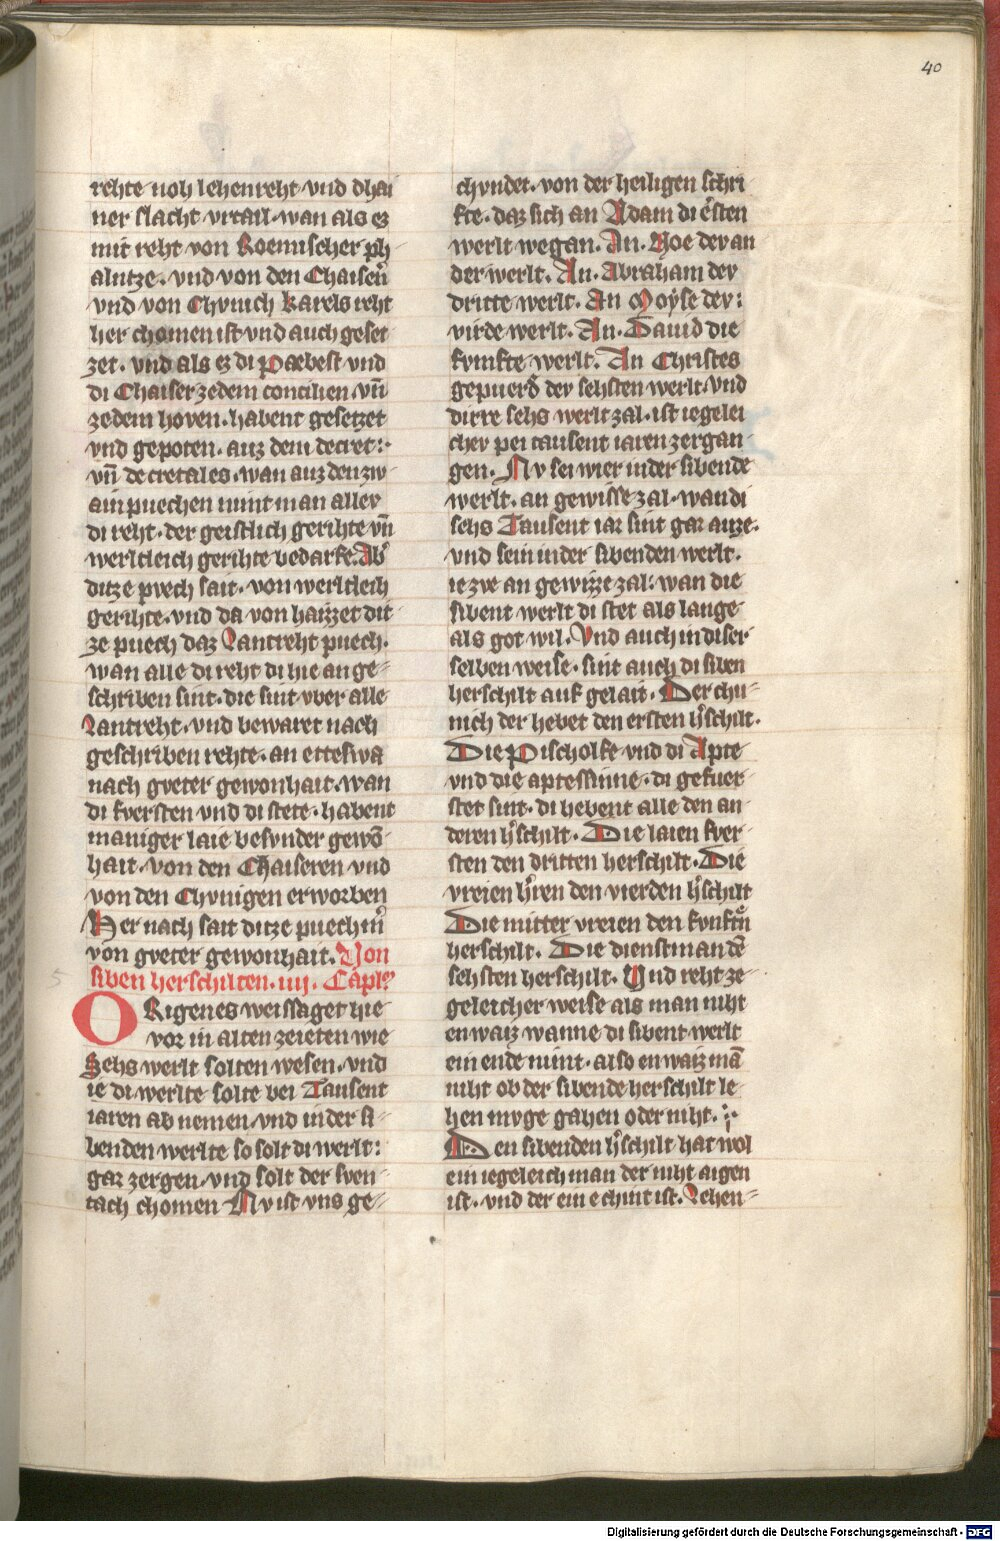 40
rehte noh lehenreht vnd dhai
ner slacht vrtail · wan als ez
mit reht von Roemischer ph
alntze · vnd von den Chaisern̄
vnd von Chvnich Karels reht
her chomen ist vnd auch geset
zet · vnd als ez di Paebest vnd
di Chaiser zedem concilien · vn̄
zedem hoven · habent gesetzet
vnd gepoten · auz dem decret:·
vn̄ decretales · wan auz den zw
ain puechen nimt man aller
di reht · der geistlich gerihte vn̄
werltleich gerihte bedarf. Ab̉
ditze pvech sait · von werltleih
gerihte · vnd da von haizzet dit
ze puech daz Lantreht puech ·
wan alle di reht di hie an ge⸗
schriben sint · die sint vber alle
Lantreht · vnd bewaret nach
geschriben rehte · an etteswa
nach gveter gewonhait · wan
di fversten vnd di stete · habent
maniger laie besvnder gewō
hait · von den Chaiseren vnd
von den Chvnigen erworben
Her nach sait ditze puech m̉
von gveter gewonhait. Von
siben herschilten · iiij · Capl̉
ORigenes weissaget hie
vor in alten zeieten wie
Sehs werlt solten wesen · vnd
ie di werlte solte bei Tausent
iaren ab nemen · vnd in der si⸗
benden werlte so solt di werlt:
gar zergen · vnd solt der sven⸗
tach chomen Nv ist vns ge⸗
chvndet · von der heiligen schri
fte · daz sich an Adam di ersten
werlt wegan. An · Noe der an
der werlt. An · Abraham der
dritte werlt. An Moyse der:
virde werlt. An · Dauid die
fvnfte werlt. An Christes
gepuerd der sehsten werlt · vnd
dirre sehs werlt zal · ist iegelei
cher pei tausent iaren zergan
gen. Nv sei wier in der sibende
werlt · an gewisse zal · wan di
sehs Tausent iar sint gar auze ·
vnd sein in der sibenden werlt.
iezve an gewizze zal: wan die
sibent werlt di stet als lange
als got wil. Vnd auch in diser
selben weise · sint auch di siben
herschilt auf gelait · Der chu⸗
nich der hebet den ersten h̉schilt.
Die Pischolfe vnd di Apte
vnd die aptessinne · di gefuer
stet sint · di hebent alle den an
deren h̉schilt · Die laien fver
sten den dritten herschilt · Die
vreien h̉ren den vierden h̉schilt
Die mitter vreien den fvnftn̉
herschilt · Die dienstman dē
sehsten herschilt. Vnd reht ze⸗
geleicher weise als man niht
en waiz wanne di sibent werlt
ein ende nimt · also en waiz mā
niht ob der sibende herschilt le⸗
hen mvge gahen oder niht.
Den sibenden h̉schilt hat wol
ein iegeleich man der niht aigen
ist · vnd der ein e chint ist. Lehen⸗
5
Digitalisierung gefördert durch die Deutsche Forschungsgemeinschaft - DFG